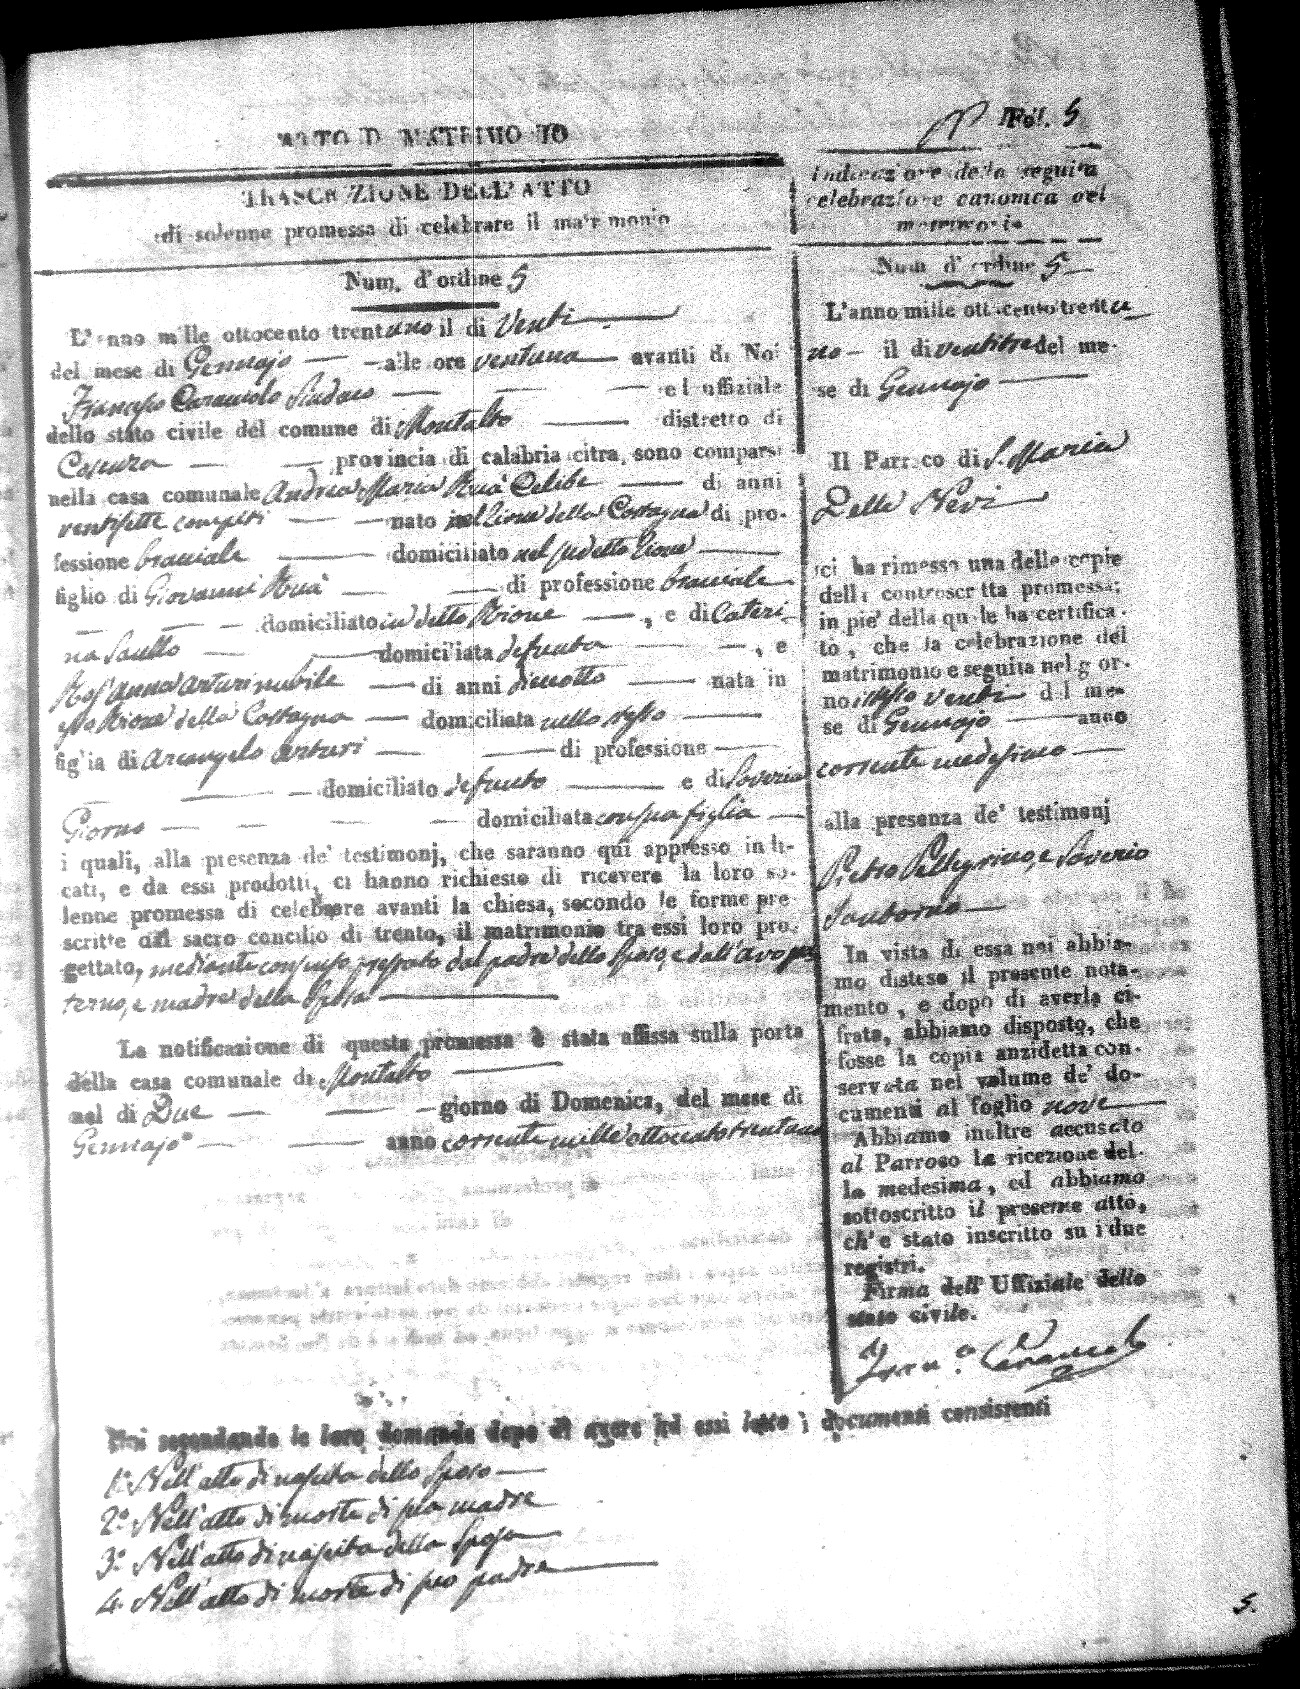 ATTO DI MATRIMONIO
TRASCRIZIONE DELL'ATTO
di solenne promessa di celebrare il matrimonio
Num. d'ordine 5
L'anno mille ottocento trentuno il di Venti
del mese di Gennajo alle ore ventuna avanti di Noi
Francesco Caracciolo Sindaco ed uffiziale
dello stato civile del comune di Montalto distretto di
Cosenza provincia di calabria citra, sono comparsi
nella casa comunale Andrea Maria Ruà Celibe di anni
ventisette compiti nato nel Rione della Costagna di pro-
fessione bracciale domiciliato nel sudetto Rione
figlio di Giovanni Ruà di professione bracciale
domiciliato in detto Rione , e di Cateri-
na domiciliata defunta , e
Ros'anna Arturi nubile di anni diciotto nata in
Rione della Costagna domiciliata nello stesso
figlia di Arcangelo Arturi di professione
domiciliato defunto e di Saveria
Giorno domiciliata con sua figlia
i quali, alla presenza de' testimonj, che saranno qui appresso indi-
cati, e da essi prodotti, ci hanno richiesto di ricevere la loro so-
lenne promessa di celebrare avanti la chiesa, secondo le forme pre-
scritte dal sacro concilio di trento, il matrimonio tra essi loro pro-
gettato, mediante consenso prestato dal padre dello sposo, e dall'avo pa-
terno, e madre della Sposa
La notificazione di questa promessa è stata affissa sulla porta
della casa comunale di Montalto
nel di Due giorno di Domenica, del mese di
Gennajo anno corrente mille ottocento trentuno
Noi secondando le loro domande dopo di avere ad essi letto i documenti consistenti
1.° Nell'atto di nascita dello Sposo
2.° Nell'atto di morte di sua madre
3.° Nell'atto di nascita della Sposa
4. Nell'atto di morte di suo padre
Fol. 5
Indicazione della seguita
celebrazione canonica del
matrimonio
Num d'ordine 5
L'anno mille ottocento trentu
no il di ventitre del me-
se di Gennajo
Il Parroco di S. Maria
Della Nevi
ci ha rimesso una delle copie
della controscritta promessa;
in pie' della quale ha certifica-
to, che la celebrazione del
matrimonio e seguita nel gior-
no venti del me-
se di Gennajo anno
corrente medesimo
alla presenza de' testimonj
Pietro Pellegrino, e Saverio
In vista di essa noi abbia-
mo disteso il presente nota-
mento, e dopo di averla ci-
frata, abbiamo disposto, che
fosse la copia anzidetta con-
servata nel volume de' do-
cumenti al foglio nove
Abbiamo inoltre accusato
al Parroco la ricezione del-
la medesima, ed abbiamo
sottoscritto il presente atto,
ch'e stato inscritto su i due
registri.
Firma dell' Uffiziale dello
stato civile.
Fran.co Caracciolo
5.